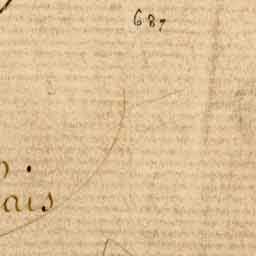 687
ais